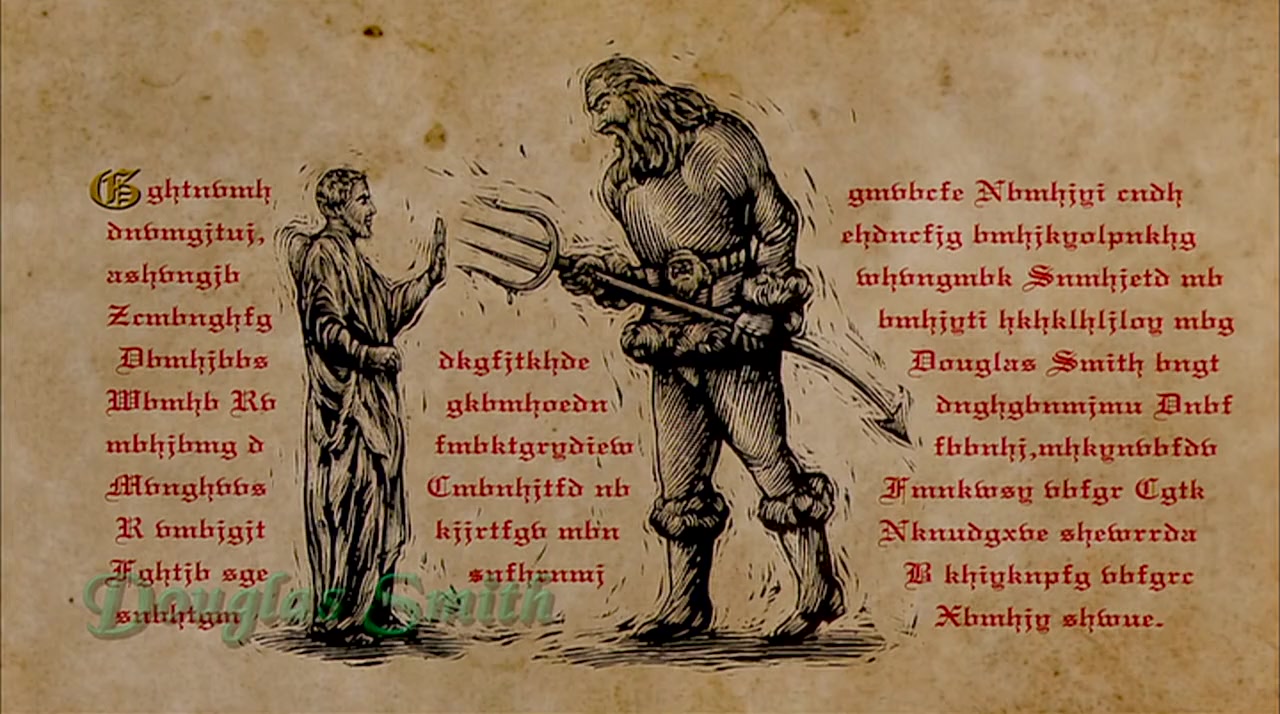 Gghtnvmh
dnvmgjtuj,
ashvngjb
Zcmbnghfg
Dbmhjbbs
Wbmhb Rv
mbhjbmg d
Mvnghvvs
R vmbjgjt
Fghtjb sge
snbhtgm
dkgfjtkhde
gkbmhoedn
fmbktgrydiew
Cmbnhjtfd nb
kjjrtfgv mbn
snfhrnmj
gmvbcfe Nbmhjyi cndh
ehdncfjg bmhjkyolpnkhg
whvngmbk Snmhjetd mb
bmhjyti hkhklhljloy mbg
Douglas Smith bngt
dnghgbnmjmu Dnbf
fbbnhj,mhkynvbfdv
Fmnkwsy vbfgr Cgtk
Nknudgxve shewrrda
B khiyknpfg vbfgrc
Xbmhjy shwue.
Douglas Smith